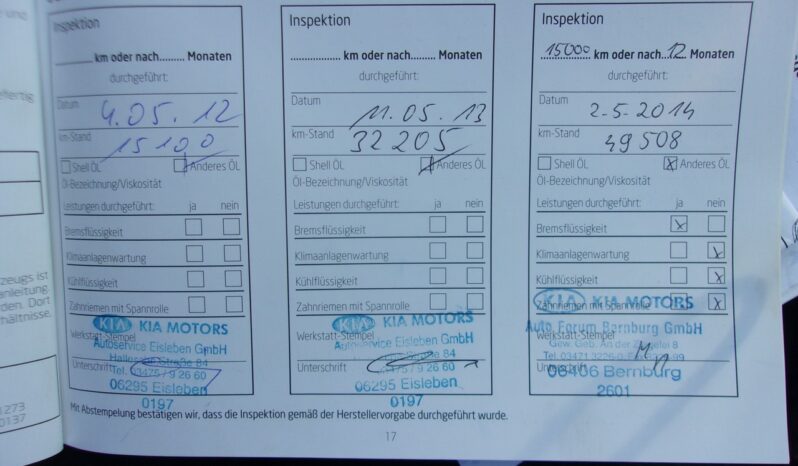 Inspektion
km oder nach......... Monaten
durchgeführt:
Datum
4.05.12
km-Stand
15100
Shell ÖL
Anderes ÖL
Öl-Bezeichnung/Viskosität
Leistungen durchgeführt: ja nein
Bremsflüssigkeit
Klimaanlagenwartung
Kühlflüssigkeit
Zahnriemen mit Spannrolle
KIA KIA MOTORS
Werkstatt-Stempel
Autoservice Eisleben GmbH
Straße 84
Unterschrift
Tel. 03475/9 26 60
06295 Eisleben
0197
Inspektion
km oder nach......... Monaten
durchgeführt:
Datum
11.05.13
km-Stand
32205
Shell ÖL
Anderes ÖL
Öl-Bezeichnung/Viskosität
Leistungen durchgeführt: ja nein
Bremsflüssigkeit
Klimaanlagenwartung
Kühlflüssigkeit
Zahnriemen mit Spannrolle
KIA KIA MOTORS
Werkstatt-Stempel
Autoservice Eisleben GmbH
Straße 84
Unterschrift
/9 26 60
06295 Eisleben
0197
Inspektion
15000 km oder nach 12 Monaten
durchgeführt:
Datum
2-5-2014
km-Stand
49508
Shell ÖL
x Anderes ÖL
Öl-Bezeichnung/Viskosität
Leistungen durchgeführt: ja nein
Bremsflüssigkeit x
Klimaanlagenwartung x
Kühlflüssigkeit x
Zahnriemen mit Spannrolle x
KIA KIA MOTORS
Auto Forum Bernburg GmbH
Werkstatt-Stempel
Gew. Geb. An der 8
Tel. 03471
Unterschrift
06406 Bernburg
2601
Mit Abstempelung bestätigen wir, dass die Inspektion gemäß der Herstellervorgabe durchgeführt wurde.
17
und
efertig
zeugs ist
anleitung.
den. Dort
hältnisse.
1273
0137